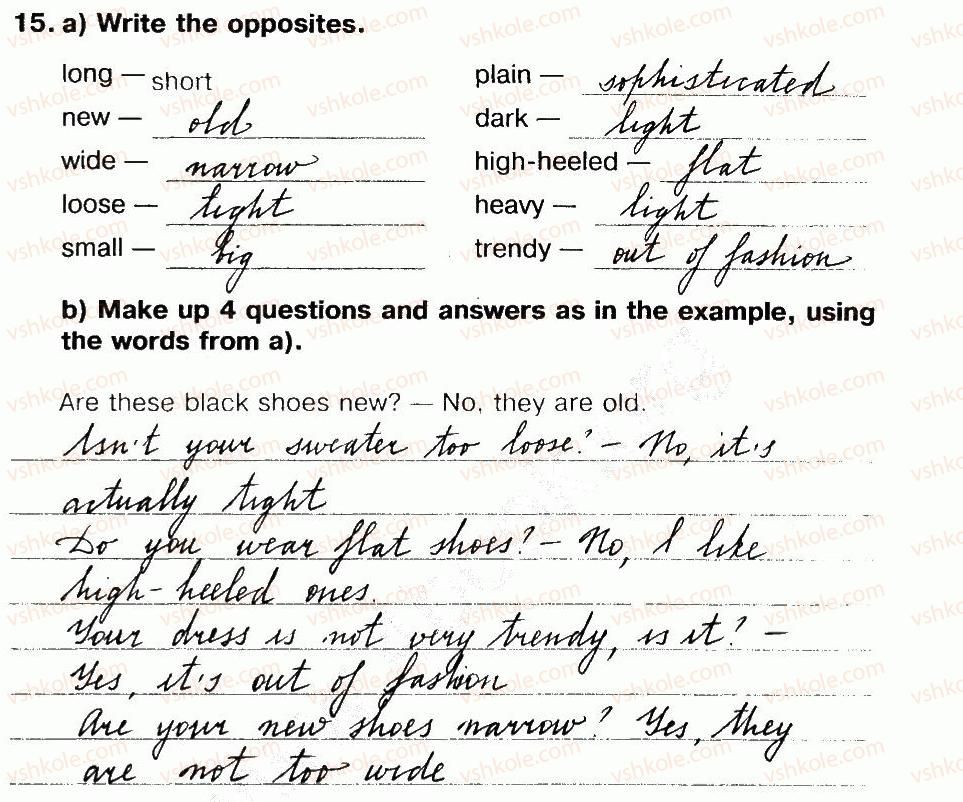 15. a) Write the opposites.
long — short
new — old
wide — narrow
loose — tight
small — big
plain — sophisticated
dark — light
high-heeled — flat
heavy — light
trendy — out of fashion
b) Make up 4 questions and answers as in the example, using
the words from a).
Are these black shoes new? — No, they are old.
Isn't your sweater too loose? – No, it's
actually tight
Do you wear flat shoes? – No, I like
high-heeled ones.
Your dress is not very trendy, is it? –
Yes, it's out of fashion
Are your new shoes narrow? Yes, they
are not too wide
vshkole.com